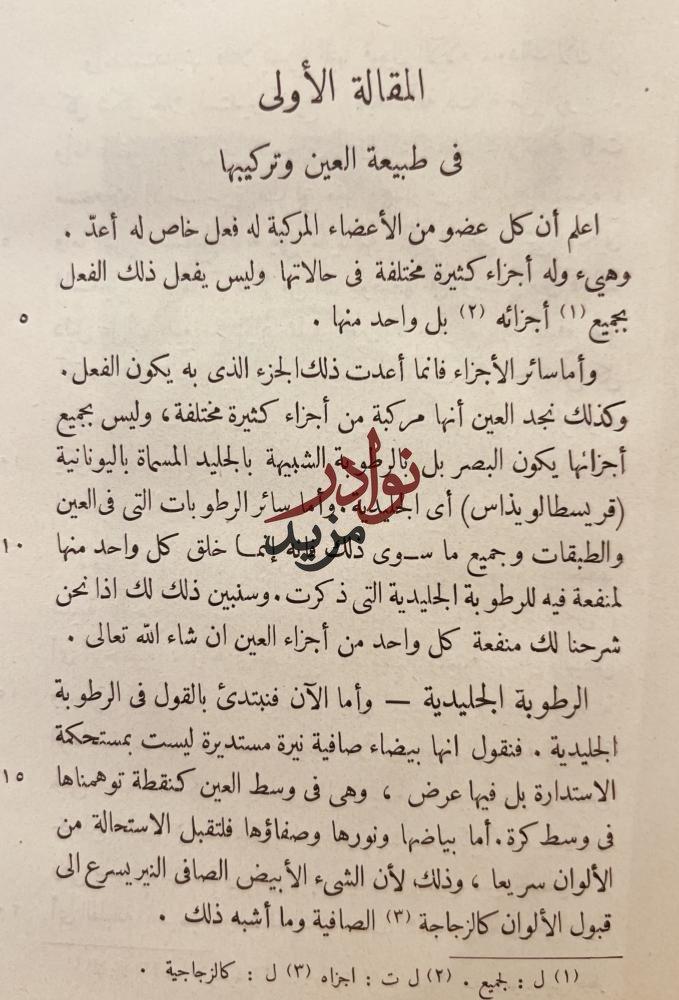 المقالة الأولى
فى طبيعة العين وتركيبها
اعلم أن كل عضو من الأعضاء المركبة له فعل خاص له أعدّ .
وهيء وله أجزاء كثيرة مختلفة فى حالاتها وليس يفعل ذلك الفعل
بجميع (١) أجزائه (٢) بل واحد منها . ٥
وأما سائر الأجزاء فانما أعدت ذلك الجزء الذى به يكون الفعل .
وكذلك نجد العين أنها مركبة من أجزاء كثيرة مختلفة ، وليس بجميع
أجزائها يكون البصر بل بالرطوبة الشبيهة بالجليد المسماة باليونانية
(قريسطالويذاس) أى الجليدية . وأما سائر الرطوبات التى فى العين
والطبقات وجميع ما ســوى ذلك فإنه إنمــا خلق كل واحد منها ١٠
لمنفعة فيه للرطوبة الجليدية التى ذكرت . وسنبين ذلك لك اذا نحن
شرحنا لك منفعة كل واحد من أجزاء العين ان شاء الله تعالى .
الرطوبة الجليدية — وأما الآن فنبتدئ بالقول فى الرطوبة
الجليدية . فنقول انها بيضاء صافية نيرة مستديرة ليست بمستحكمة
الاستدارة بل فيها عرض ، وهى فى وسط العين كنقطة توهمناها ١٥
فى وسط كرة . أما بياضها ونورها وصفاؤها فلتقبل الاستحالة من
الألوان سريعا ، وذلك لأن الشىء الأبيض الصافى النير يسرع الى
قبول الألوان كالزجاجة (٣) الصافية وما أشبه ذلك .
(١) ل : لجميع . (٢) ل ت : اجزاه (٣) ل : كالزجاجية .
نوادر
مزيد